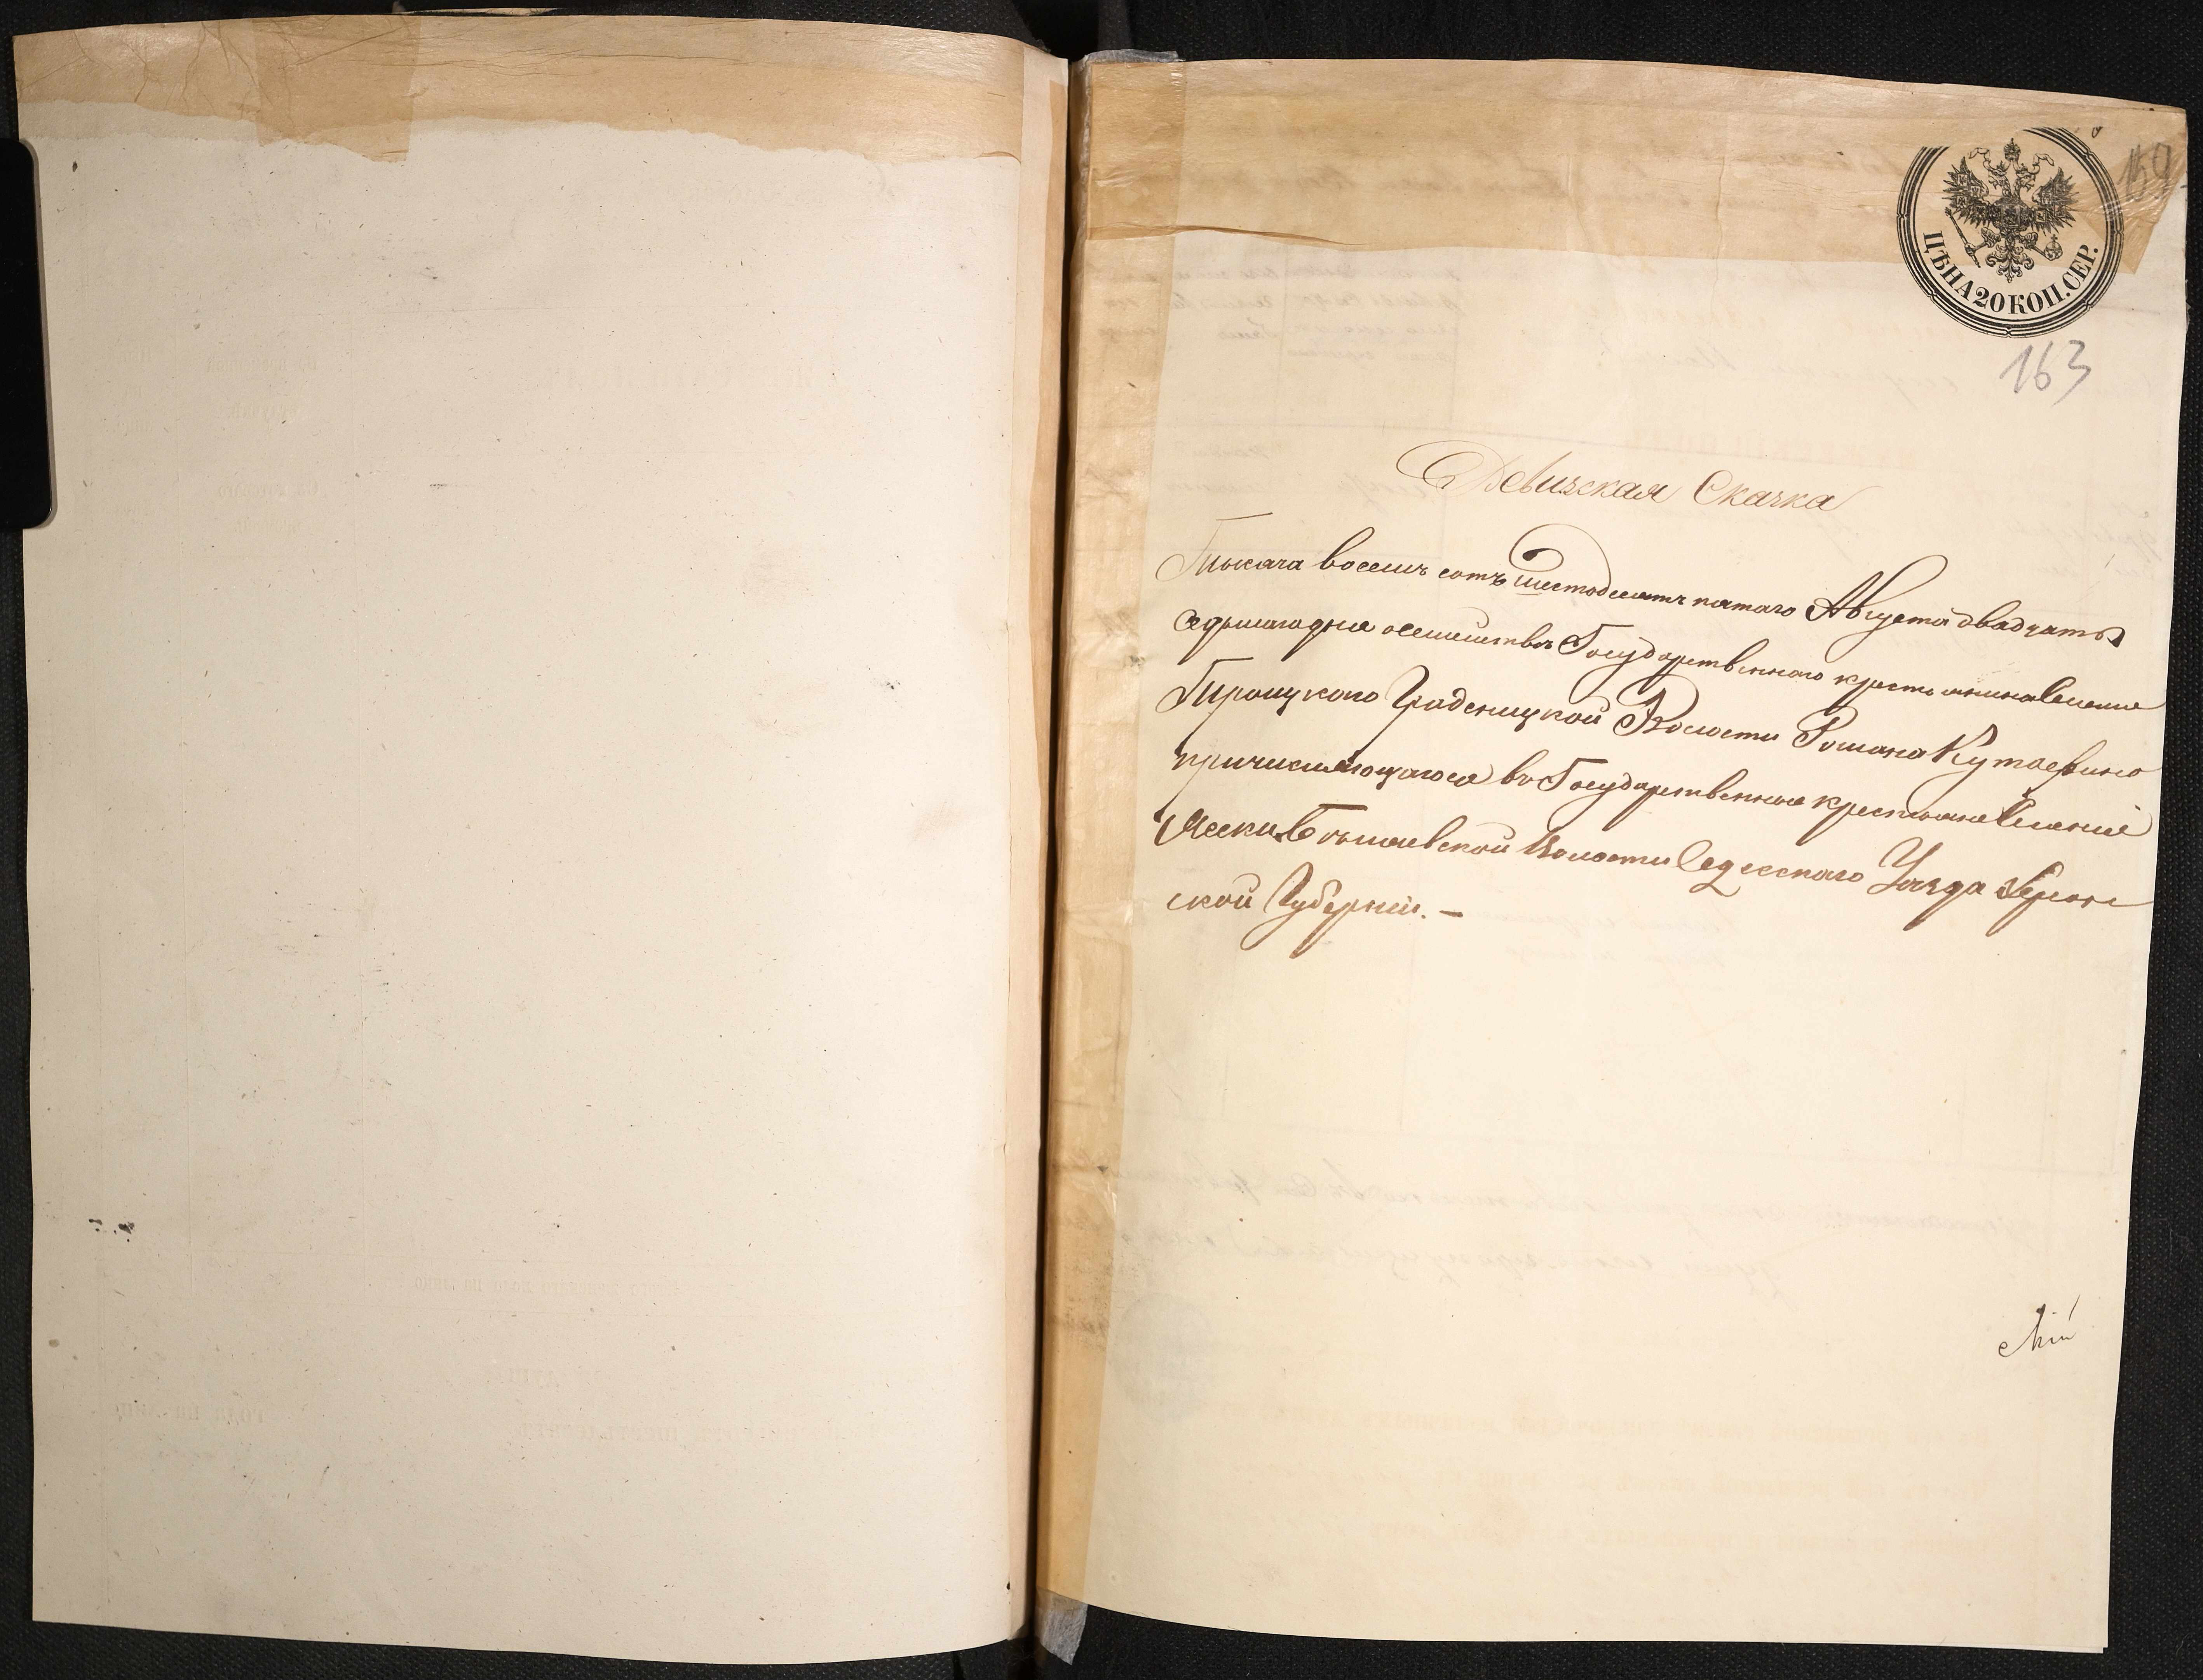 159
ЦѢНА 20 КОП. СЕР.
163
Ревизская Скачка
Тысяча восемь сотъ шестодесят пятаго Августа двадцать
седмаго дня осемействѣ Государственного крестьянина Селения
Троицкого Граденицкой Волости Романа Кутаефина
причисляющагося во Государственные крестьяне Селения
Яски Волости Одесского Уезда Херсон
ской Губернии. —